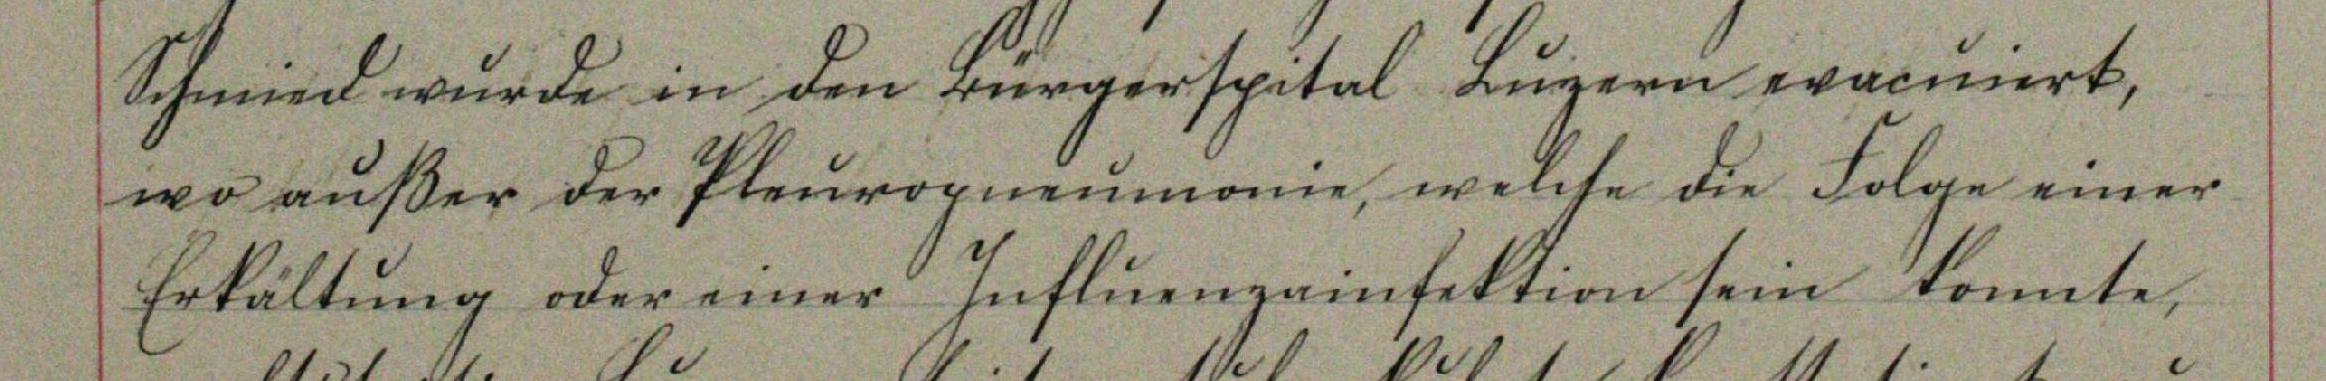 Schmied wurde in den Bürgerspital Luzern evacuiert,
wo außer der Pleuropneumonie, welche die Folge einer
Erkältung oder einer Influenzainfektion sein konnte,